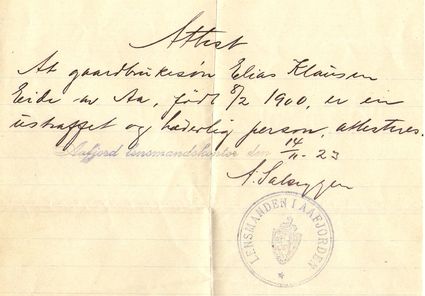 Attest
At gaardbrukesøn Elias Klausen
Eide av Aa, født 8/2 1900, er en
ustraffet og hæderlig person, attesteres.
Aafjord lensmandskontor den 14/11-23
LENSMANDEN I AAFJORDEN